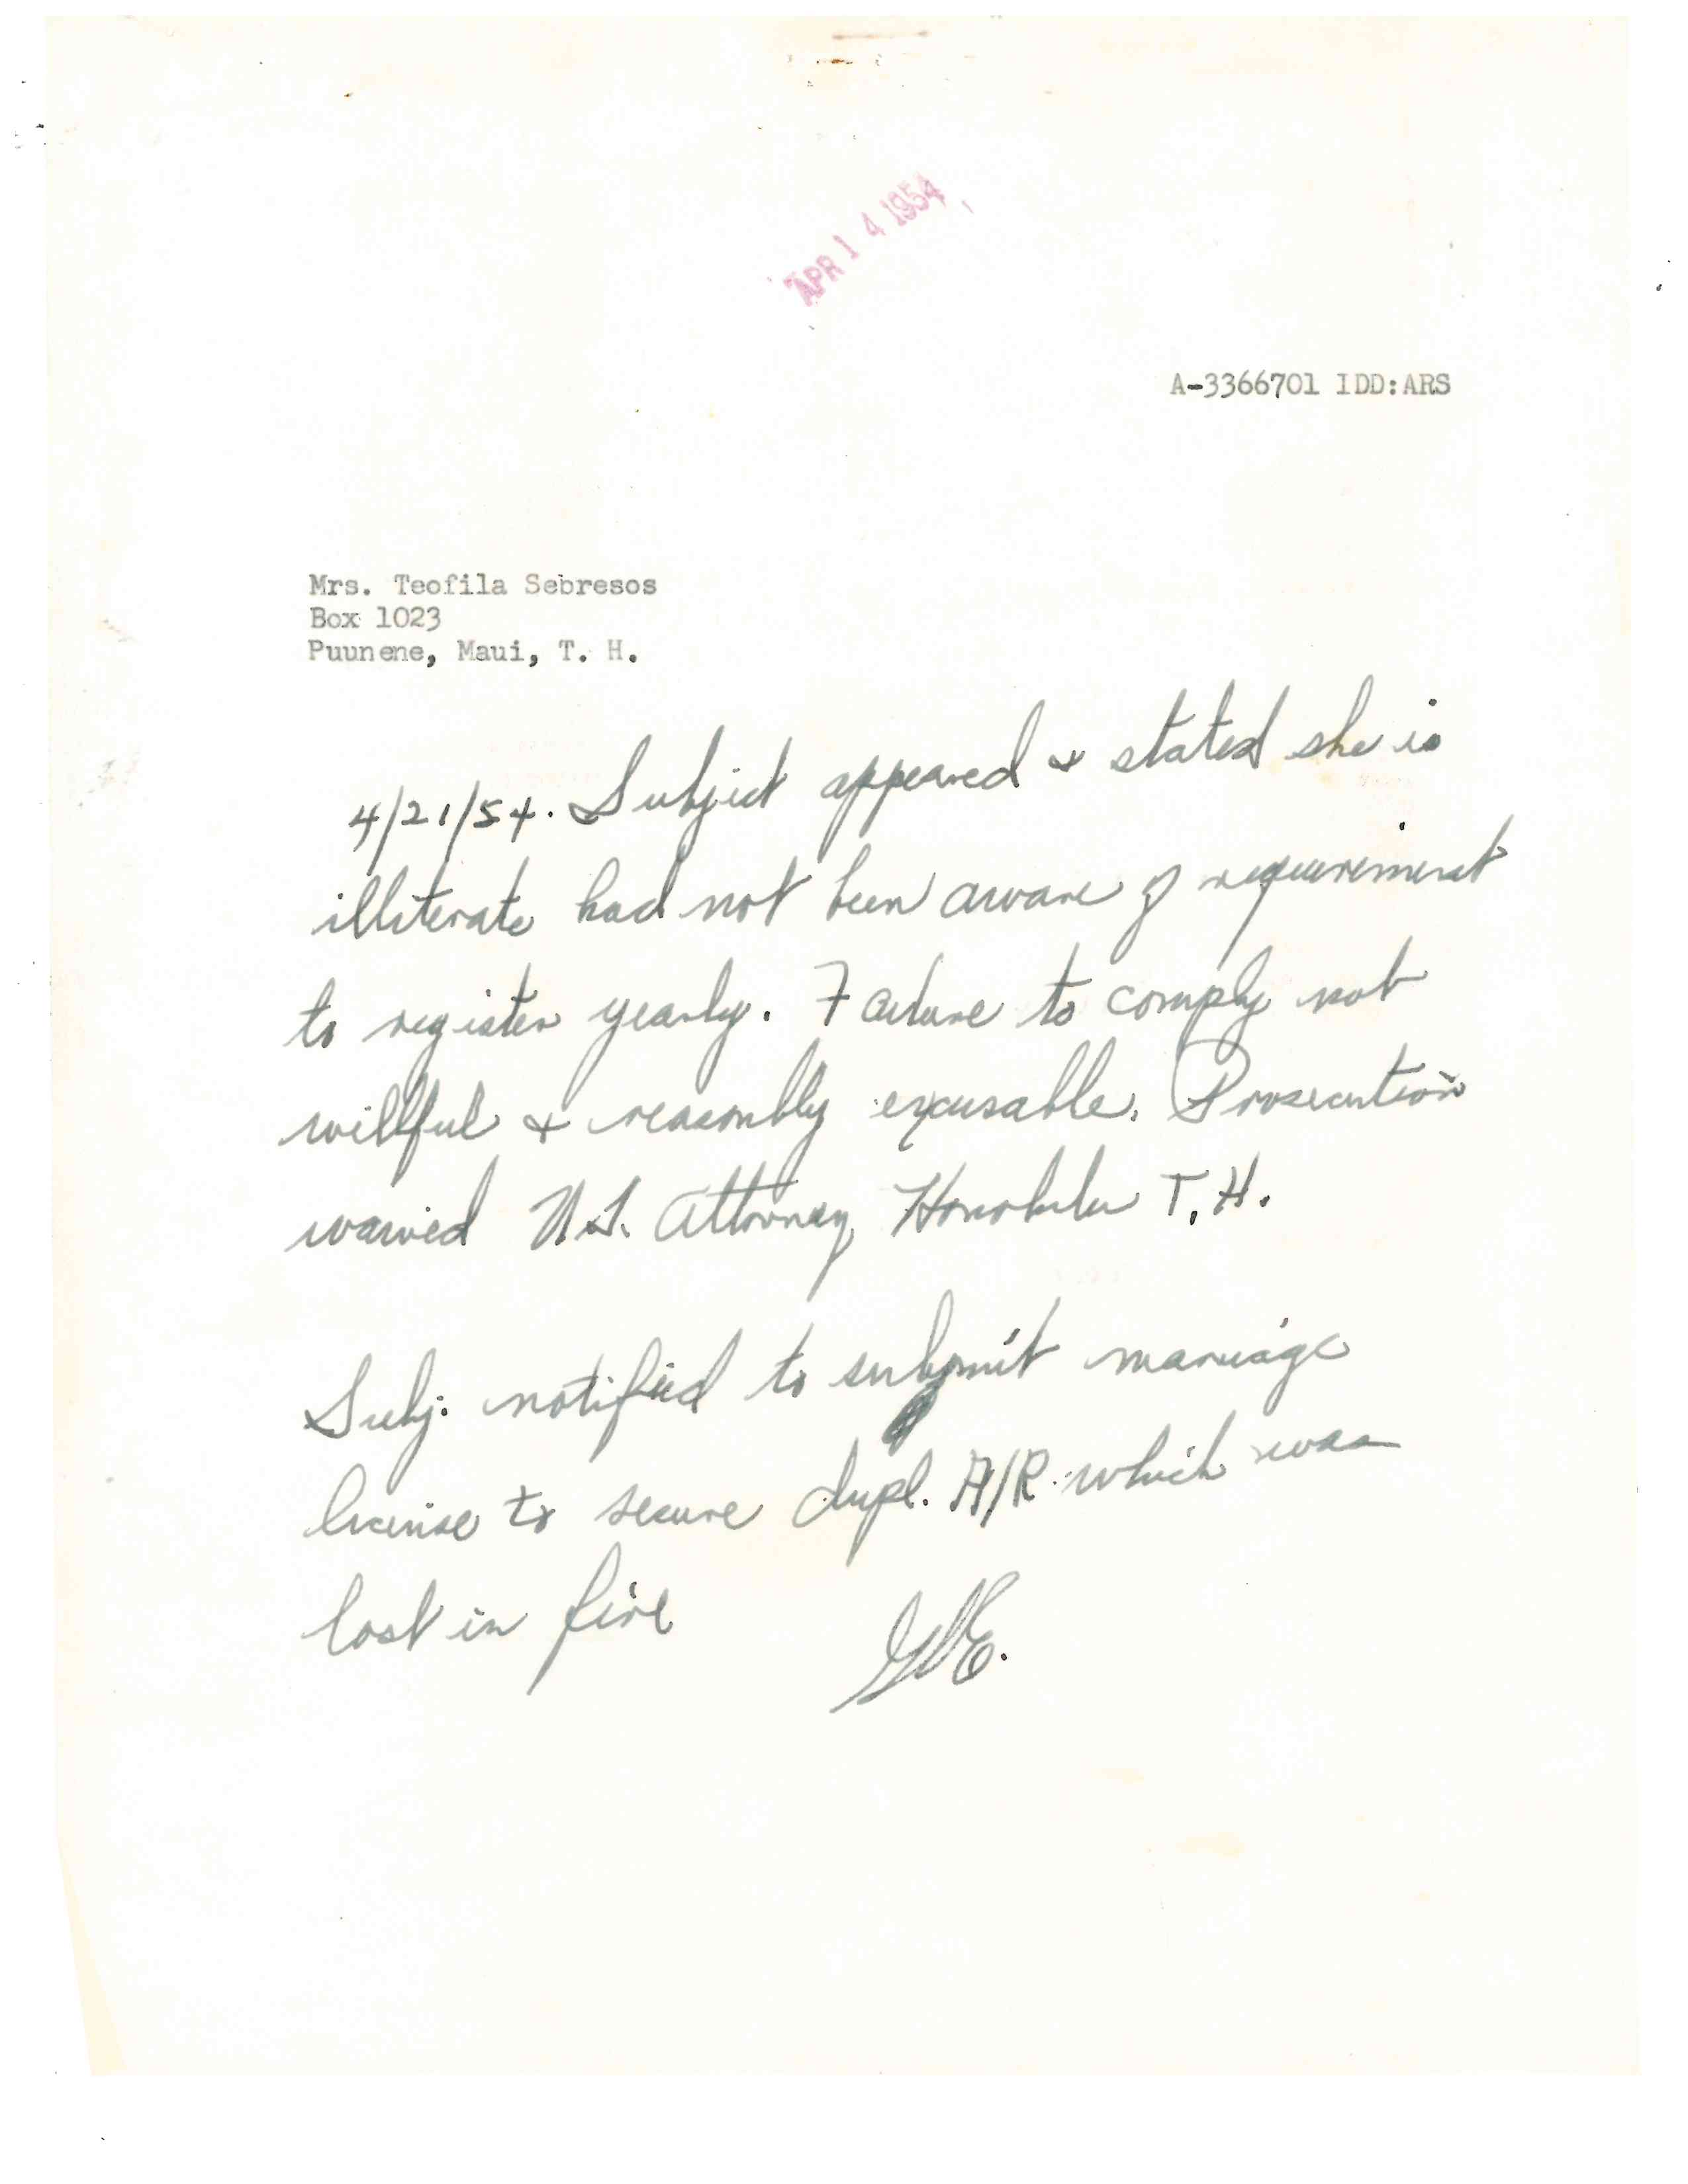 APR 14 1954
A-3366701 IDD:ARS
Mrs. Teofila Sebresos
Box 1023
Puunene, Maui, T. H.
4/21/54. Subject appeared & stated she is
illiterate had not been aware of requirement
to register yearly. Failure to comply not
willful & reasonably excusable. Prosecution
waived U.S. Attorney, Honolulu T.H.
Subj. notified to submit marriage
license to secure dupl. A/R which was
lost in fire